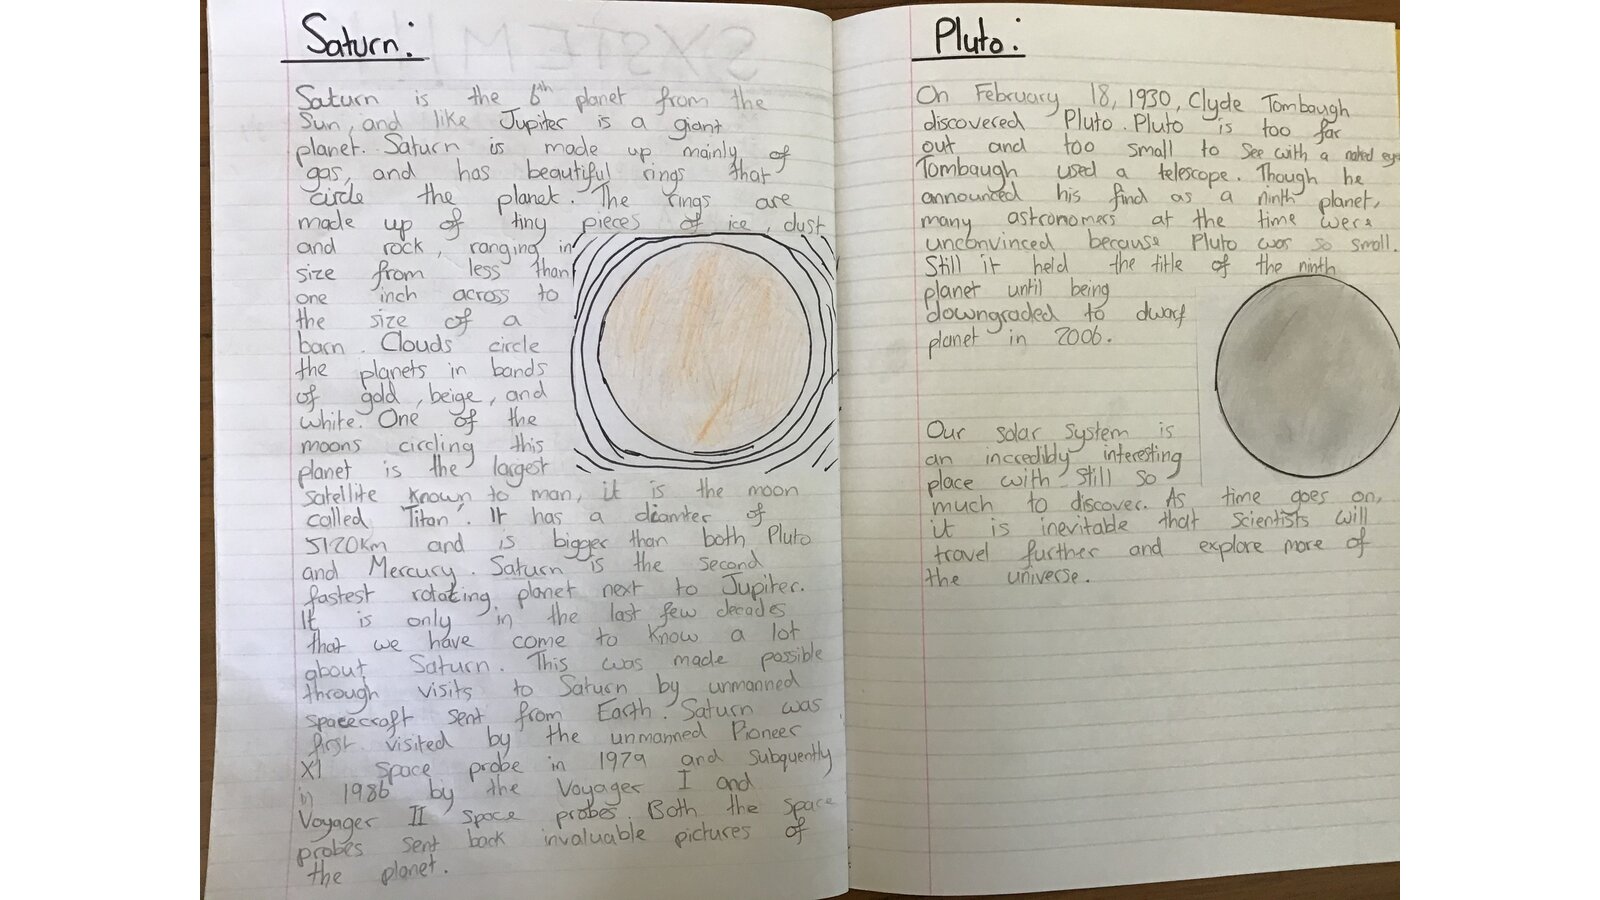 Saturn:
Saturn is the 6th planet from the
Sun, and like Jupiter is a giant
planet. Saturn is made up mainly of
gas, and has beautiful rings that
circle the planet. The rings are
made up of tiny pieces of ice, dust
and rock, ranging in
size from less than
one inch across to
the size of a
barn. Clouds circle
the planets in bands
of gold, beige, and
white. One of the
moons circling this
planet is the largest
satellite known to man, it is the moon
called 'Titan'. It has a diamter of
5120km and is bigger than both Pluto
and Mercury. Saturn is the second
fastest rotating planet next to Jupiter.
It is only in the last few decades
that we have come to know a lot
about Saturn. This was made possible
through visits to Saturn by unmanned
spacecraft sent from Earth. Saturn was
first visited by the unmanned Pioneer
XI space probe in 1979 and Subquently
in 1986 by the Voyager I and
Voyager II space probes. Both the space
probes sent back invaluable pictures of
the planet.
Pluto:
On February 18, 1930, Clyde Tombaugh
discovered Pluto. Pluto is too far
out and too small to see with a naked eye
Tombaugh used a telescope. Though he
announced his find as a ninth planet,
many astronomers at the time were
unconvinced because Pluto was so small.
Still it held the title of the ninth
planet until being
downgraded to dwarf
planet in 2006.
Our solar system is
an incredibly interesting
place with still so
much to discover. As time goes on,
it is inevitable that scientists will
travel further and explore more of
the universe.
SYSTEM